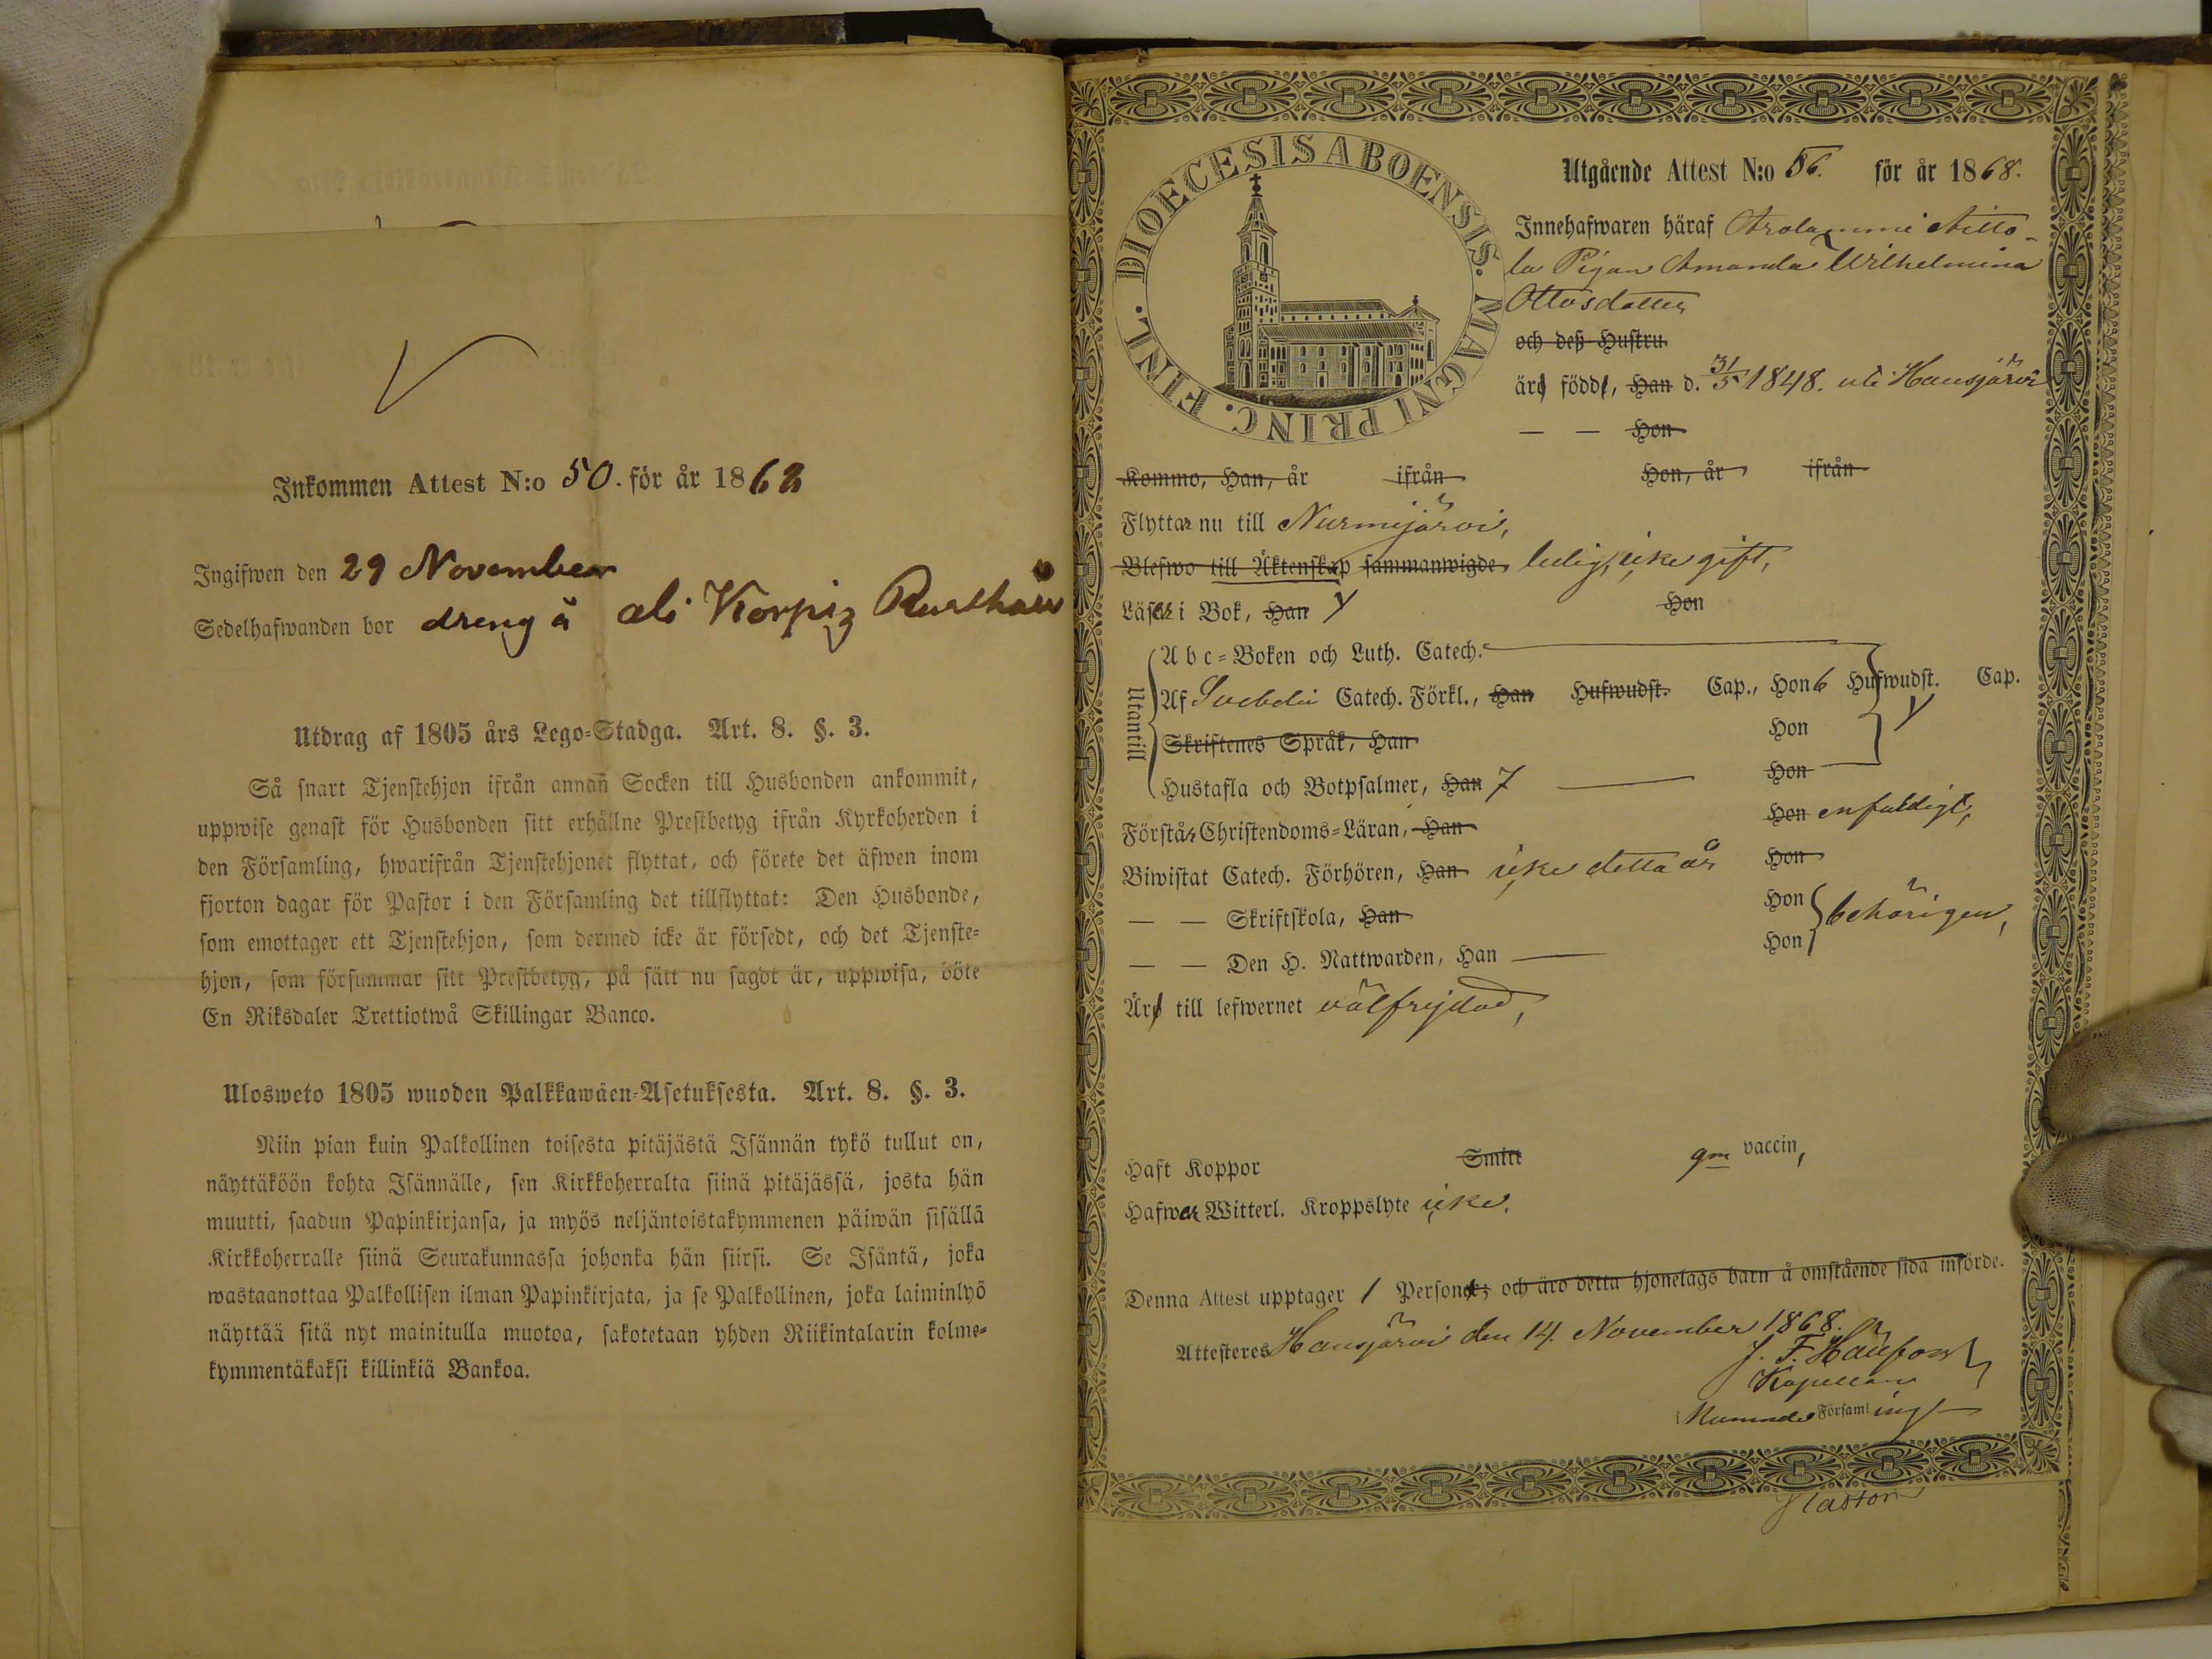 Inkommen Attest N:o 50. för år 1868
Ingifwen den 29 November
Sedelhafwanden bor dreng å ali Korpiz
Utdrag af 1805 års Lego-Stadga. Art. 8. §. 3.
Så snart Tjenstehjon ifrån annan Socken till Husbonden ankommit,
uppwise genast för Husbonden sitt erhållne Prestbetyg ifrån Kyrkoherden i
den Församling, hwarifrån Tjenstehjonet flyttat, och förete det äfwen inom
fjorton dagar för Pastor i den Församling det tillflyttat: Den Husbonde,
som emottager ett Tjenstehjon, som dermed icke är försedt, och det Tjenste-
hjon, som försummar sitt Prestbetyg, på sätt nu sagdt är, uppwisa, böte
En Riksdaler Trettiotwå Skillingar Banco.
Ulosweto 1805 wuoden Palkkawäen-Asetuksesta. Art. 8. §. 3.
Niin pian kuin Palkollinen toisesta pitäjästä Isännän tykö tullut on,
näyttäköön kohta Isännälle, sen Kirkkoherralta siinä pitäjässä, josta hän
muutti, saadun Papinkirjansa, ja myös neljäntoistakymmenen päiwän sisällä
Kirkkoherralle siinä Seurakunnassa johonka hän siirsi. Se Isäntä, joka
wastaanottaa Palkollisen ilman Papinkirjata, ja se Palkollinen, joka laiminlyö
näyttää sitä nyt mainitulla muotoa, sakotetaan yhden Riikintalarin kolme-
kymmentäkaksi killinkiä Bankoa.
DIOECESIS ABOENSIS. MAGNI PRINC. FINL.
Utgående Attest N:o 56. för år 1868.
Innehafwaren häraf Arolammi Aitto-
la Pigan Amanda Wilhelmina
Ottosdotter
och deß Hustru
äro född, Han d. 31/5 1848. uti Hausjärvi
— — Hon
Kommo, Han, år ifrån Hon, år ifrån
Flyttar nu till Nurmijärvi,
Blefwo till Äktenskap sammanwigde, ledig, icke gift,
Läser i Bok, Han y Hon
Utantill
Abc-Boken och Luth. Catech.
Af Svebelii Catech. Förkl., Han Hufwudst. Cap., Hon 6 Hufwudst. Cap.
Skriftenes Språk, Han Hon y
Hustafla och Botpsalmer, Han 7 — Hon
Förstår Christendoms-Läran, Han Hon enfaldigt,
Biwistat Catech. Förhören, Han icke detta år Hon
— — Skriftskola, Han Hon behörigen,
— — Den H. Nattwarden, Han — Hon
Äro till lefwernet välfrejdad,
Haft Koppor Smitt gm vaccin,
Hafwer Witterl. Kroppslyte icke.
Denna Attest upptager 1 Personer, och äro detta hjonelags barn å omstående sida införde.
Attesteres Hausjärvi den 14. November 1868.
J. F.
Kapellan
Församling
Pastor